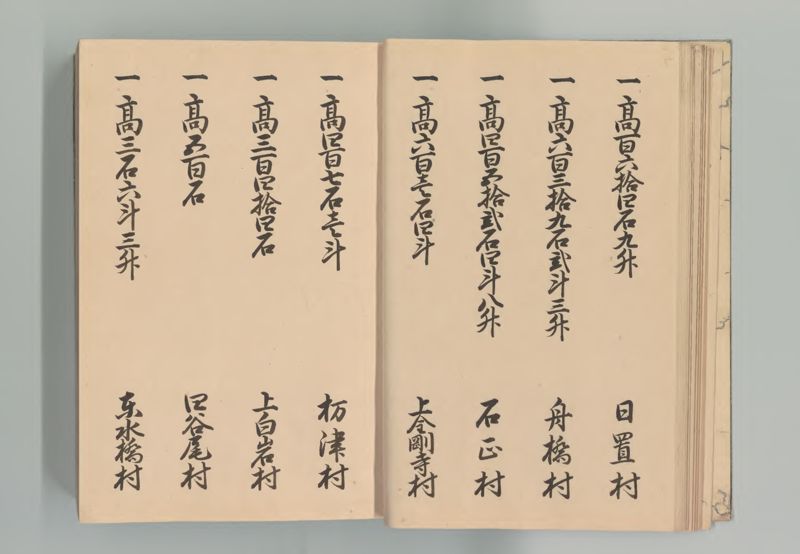 一 高百六拾四石九升 日置村
一 高六百三拾九石弐斗三升 舟橋村
一 高四百五拾弐石四斗八升 石正村
一 高六百壱石四斗 上金剛寺村
一 高四百七石壱斗 杤津村
一 高三百四拾四石 上白岩村
一 高五百石 四谷尾村
一 高三石六斗三升 東水橋村